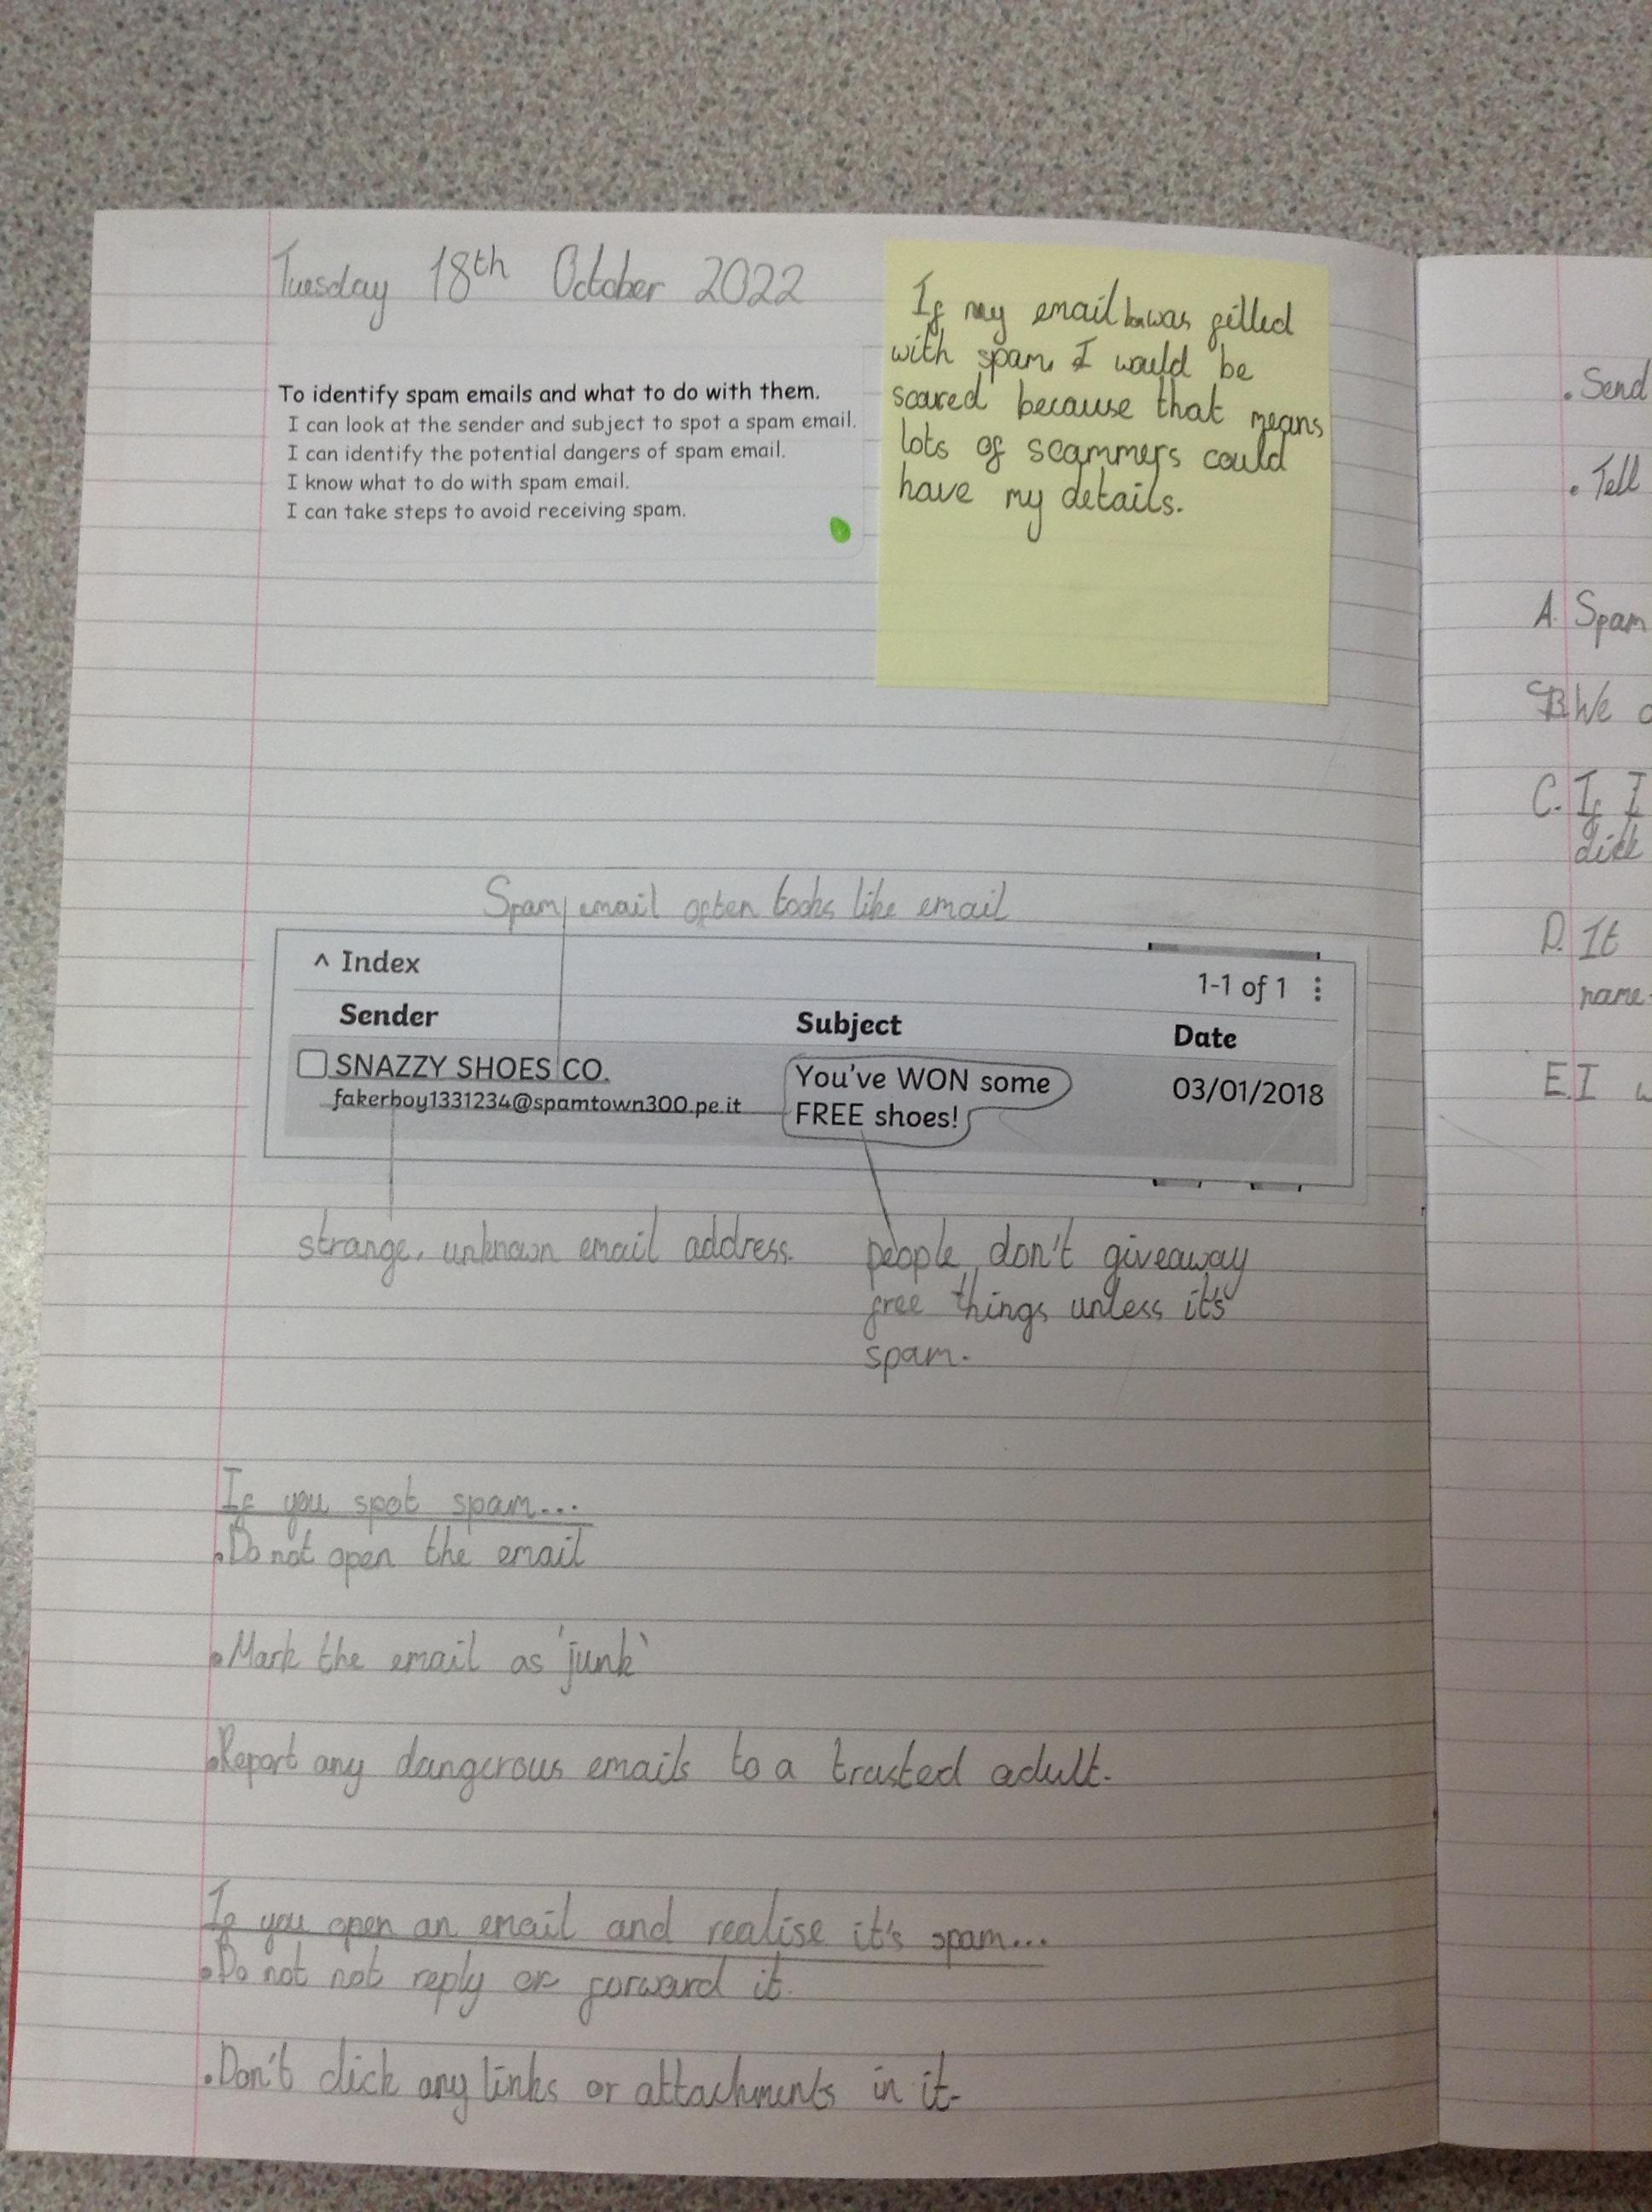 Tuesday 18th October 2022
To identify spam emails and what to do with them.
I can look at the sender and subject to spot a spam email.
I can identify the potential dangers of spam email.
I know what to do with spam email.
I can take steps to avoid receiving spam.
If my email was filled
with spam I would be
scared because that means
lots of scammers could
have my details.
Spam email often looks like email
^ Index
1-1 of 1 ⋮
Sender Subject Date
SNAZZY SHOES CO. You've WON some 03/01/2018
fakerboy1331234@spamtown300.pe.it FREE shoes!
strange, unknown email address.
people don't giveaway
free things unless it's
spam.
If you spot spam...
•Do not open the email
•Mark the email as 'junk'
•Report any dangerous emails to a trusted adult.
If you open an email and realise it's spam...
•Do not not reply or forward it.
•Don't click any links or attachments in it.
•Send
•Tell
A. Spam
B We
C. If I
click
D. It
name
E. I